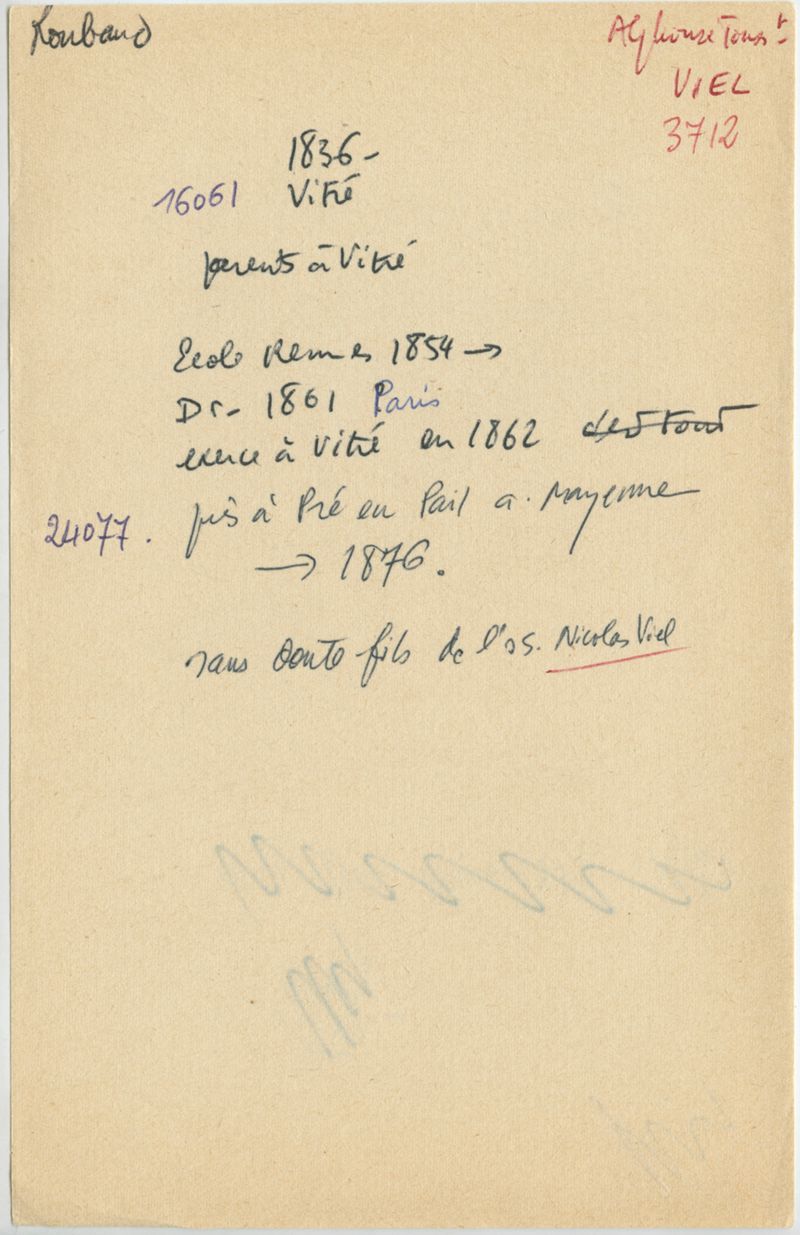 Roubaud
Alphonse Touss t
VIEL
3712
1836 -
16061 Vitré
parents à Vitré
Ecole Rennes 1854 →
Dr - 1861 Paris
exerce à Vitré en 1862
24077. puis à Pré en Pail a. Mayenne
→ 1876.
sans doute fils de l'os. Nicolas Viel